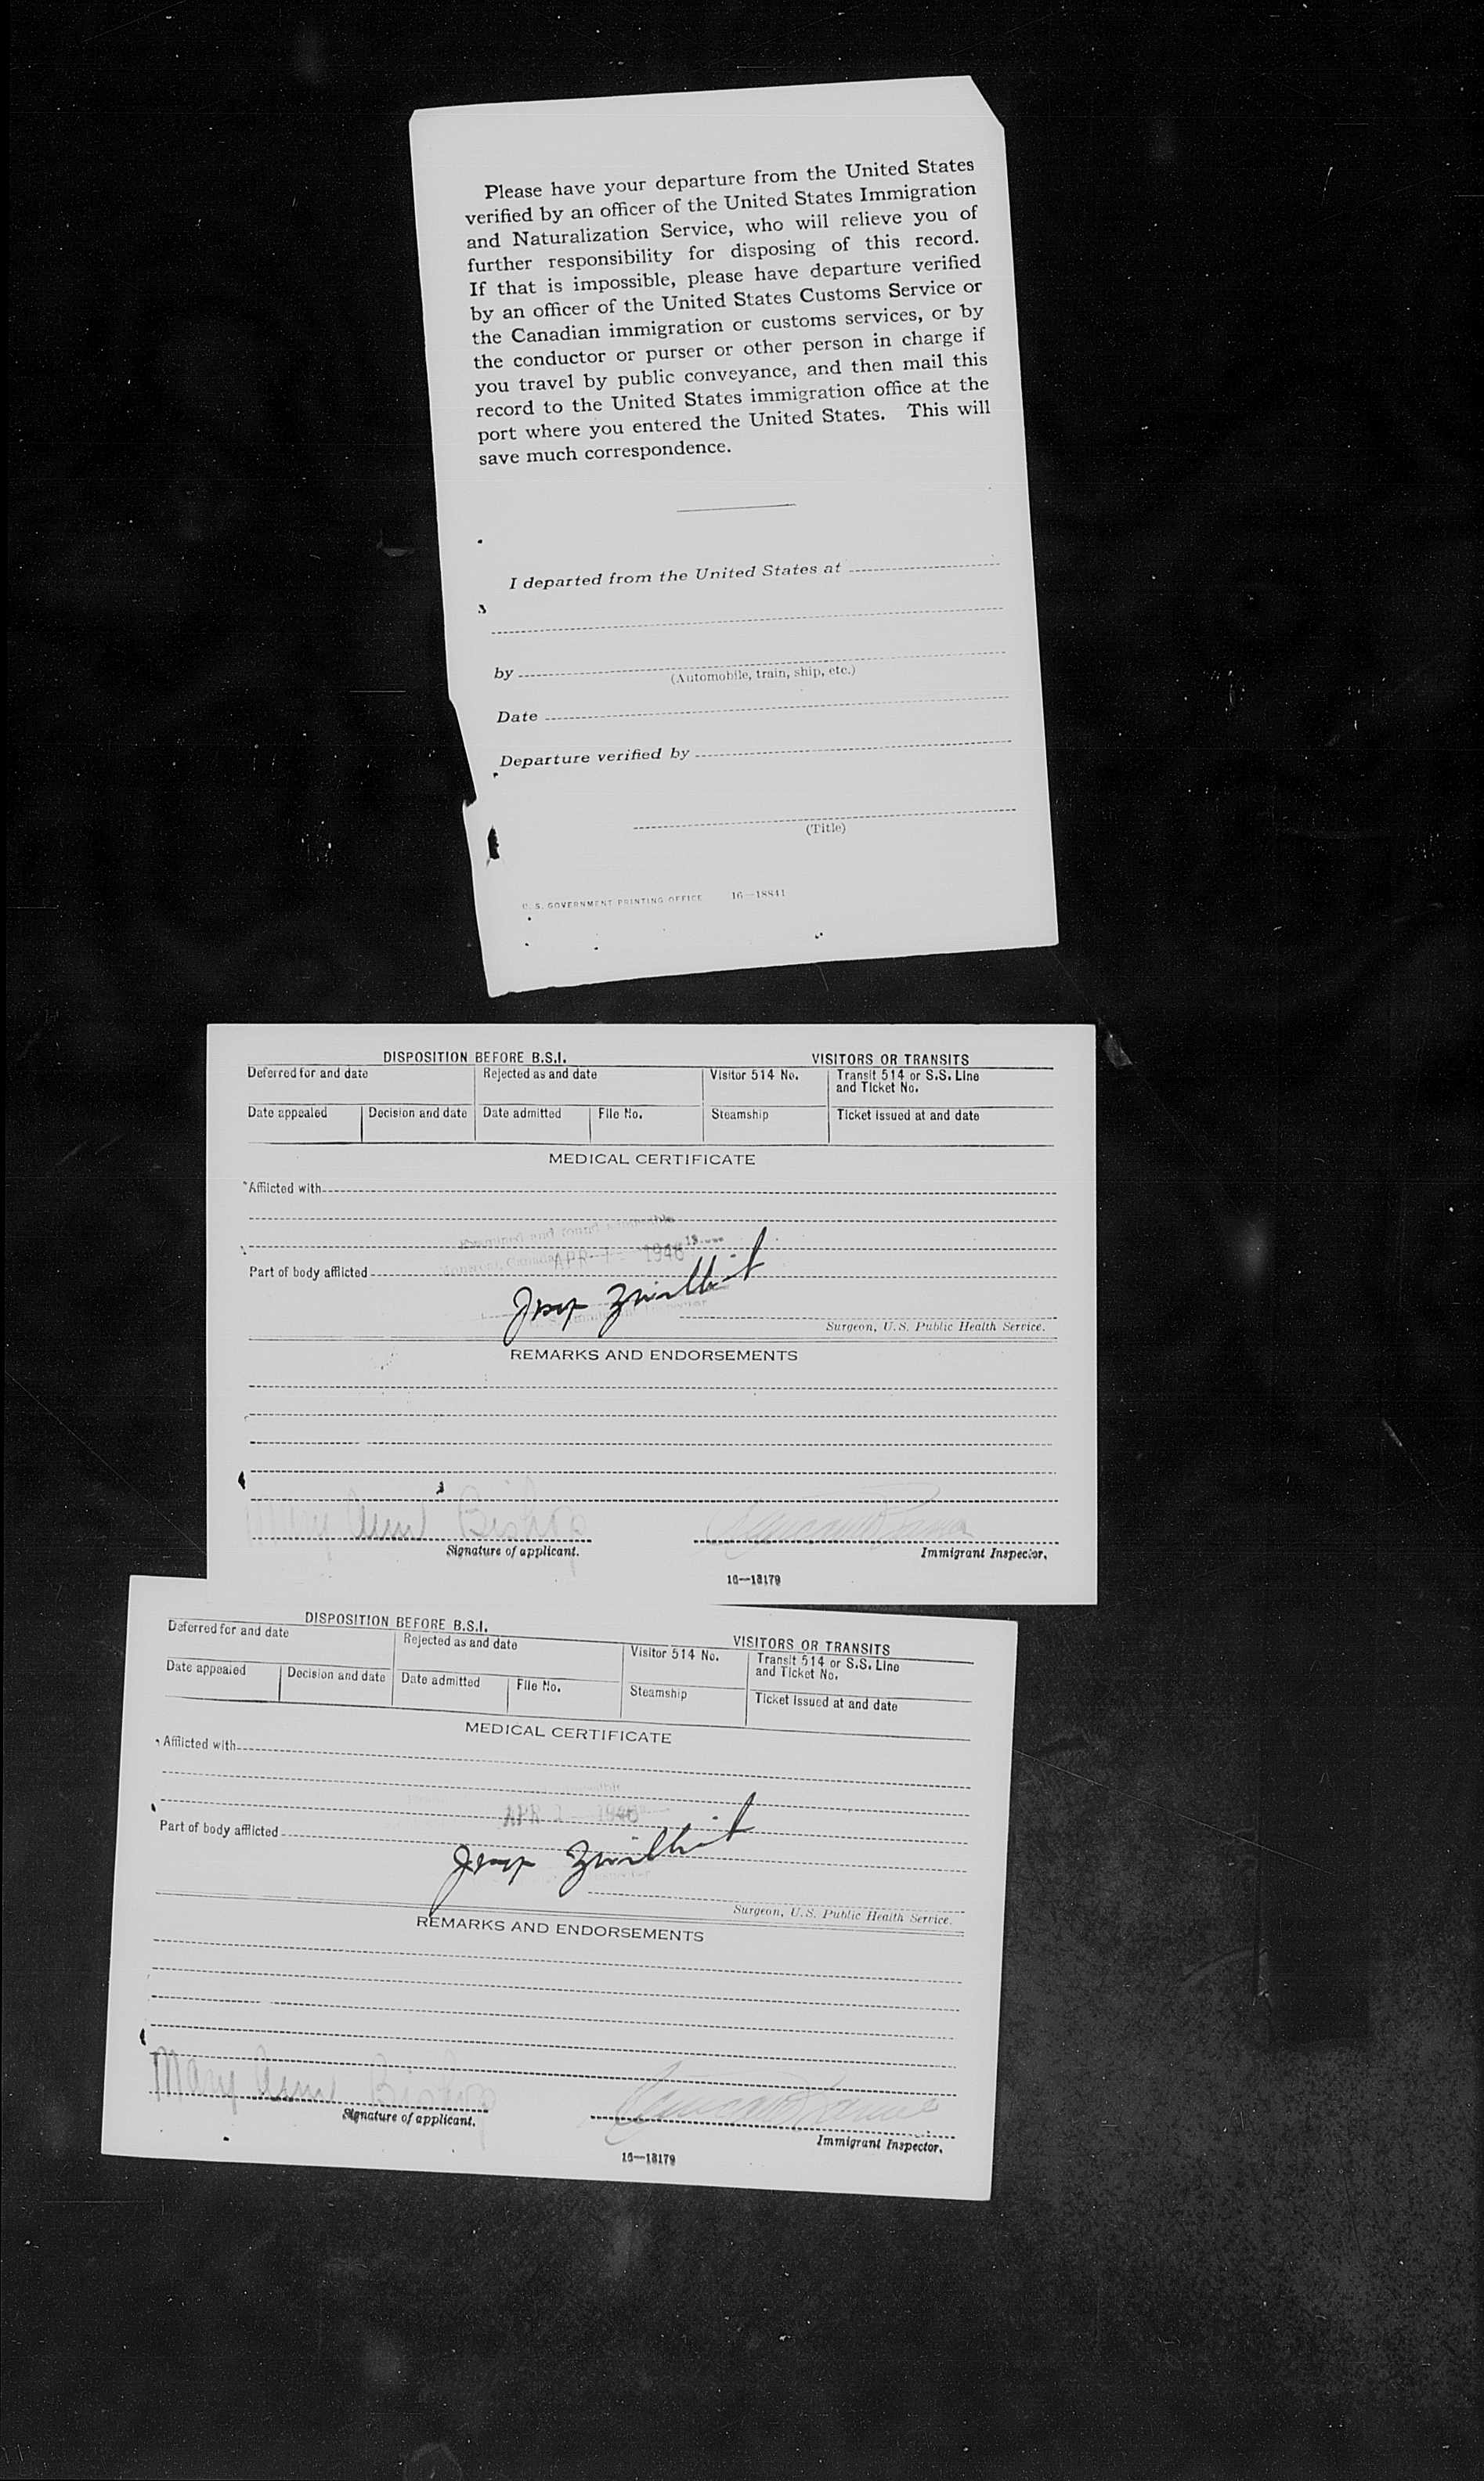 Please have your departure from the United States
verified by an officer of the United States Immigration
and Naturalization Service, who will relieve you of
further responsibility for disposing of this record.
If that is impossible, please have departure verified
by an officer of the United States Customs Service or
the Canadian immigration or customs services, or by
the conductor or purser or other person in charge if
you travel by public conveyance, and then mail this
record to the United States immigration office at the
port where you entered the United States. This will
save much correspondence.
I departed from the United States at
by
(Automobile, train, ship, etc.)
Date
Departure verified by
(Title)
U. S. GOVERNMENT PRINTING OFFICE 16—18841
DISPOSITION BEFORE B.S.I. VISITORS OR TRANSITS
Deferred for and date Rejected as and date Visitor 514 No. Transit 514 or S.S. Line
and Ticket No.
Date appealed Decision and date Date admitted File No. Steamship Ticket issued at and date
MEDICAL CERTIFICATE
Afflicted with
Examined and found
Montreal, Canada APR 1 1946
Part of body afflicted
Surgeon, U.S. Public Health Service.
REMARKS AND ENDORSEMENTS
Mary Anne Bishop
Signature of applicant. Immigrant Inspector.
16—13179
DISPOSITION BEFORE B.S.I. VISITORS OR TRANSITS
Deferred for and date Rejected as and date Visitor 514 No. Transit 514 or S.S. Line
and Ticket No.
Date appealed Decision and date Date admitted File No. Steamship Ticket issued at and date
MEDICAL CERTIFICATE
Afflicted with
APR 1 1946
Part of body afflicted
Surgeon, U.S. Public Health Service.
REMARKS AND ENDORSEMENTS
Mary Anne Bishop
Signature of applicant. Immigrant Inspector.
16—13179